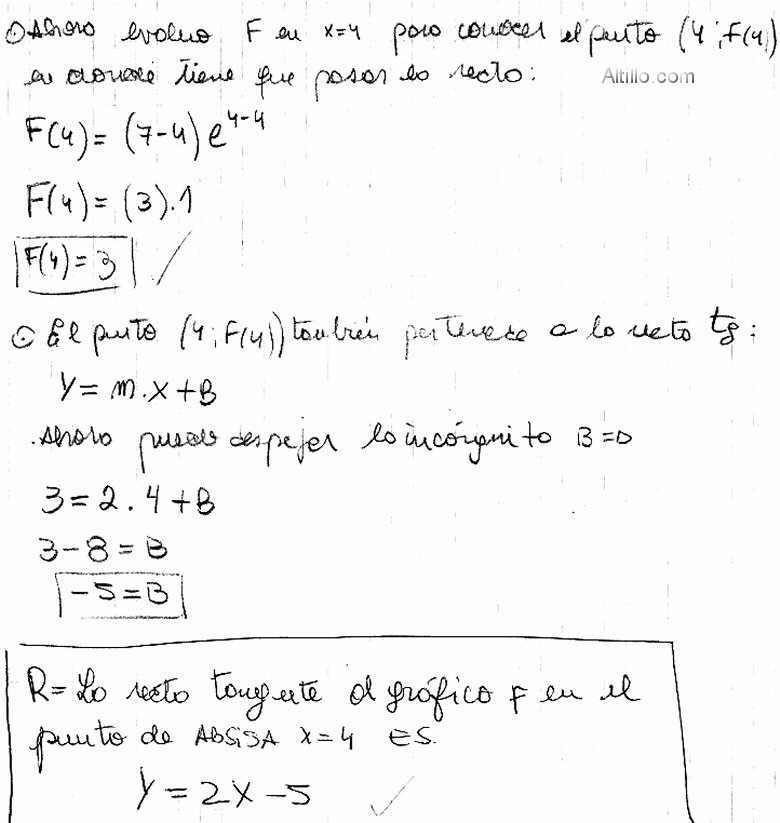 Ahora evaluo F en x=4 para conocer el punto (4;F(4)
en donde tiene que pasar la recta:
Altillo.com
F(4)= (7-4) e^4-4
F(4)= (3).1
F(4)= 3
El punto (4;F(4)) también pertenece a la recta tg:
Y= m.X+B
Ahora puedo despejar la incógnita B=D
3=2.4+B
3-8=B
-5=B
R= La recta tangente al gráfico F en el
punto de ABSISA X=4 ES.
Y=2X-5